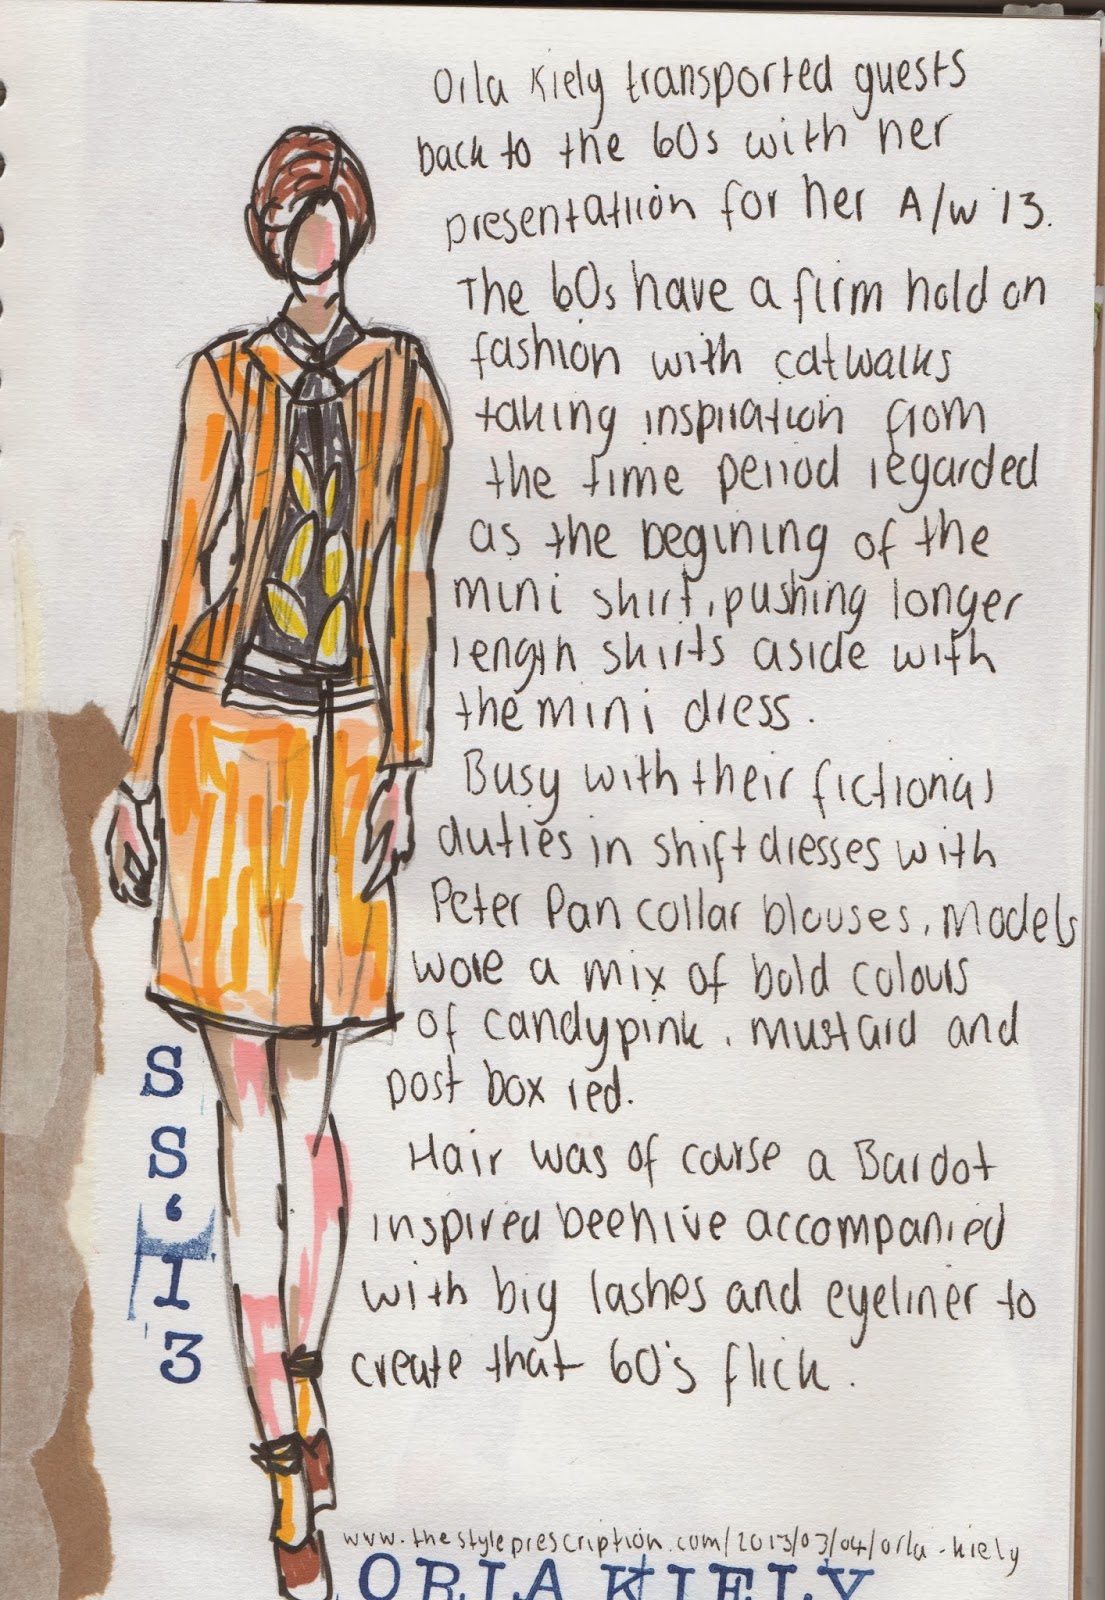 Orla Kiely transported guests
back to the 60s with her
presentatiion for her A/W '13.
The 60s have a firm hold on
fashion with catwalks
taking inspiration from
the time period regarded
as the begining of the
mini skirt, pushing longer
length skirts aside with
the mini dress.
Busy with their fictional
duties in shift dresses with
Peter Pan collar blouses, Models
wore a mix of bold colours
of candypink, mustard and
post box red.
Hair was of course a Bardot
inspired beehive accompanied
with big lashes and eyeliner to
create that 60's flick.
S
S
'
1
3
www.thestyleprescription.com/2013/03/04/orla-kiely
ORLA KIELY